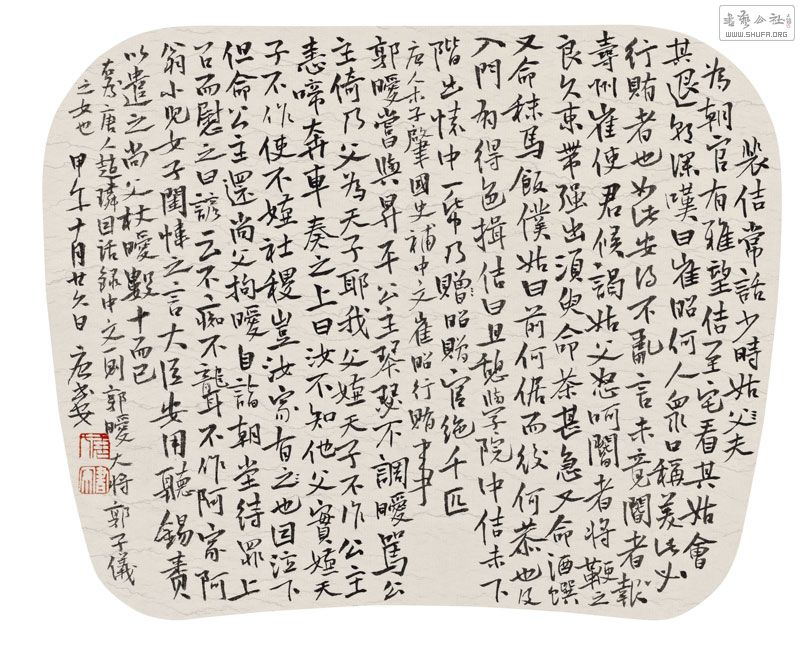 裴佶常話少時姑父夫
為朝官有雅望佶至宅看其姑會
其退朝深嘆曰崔昭何人眾口稱美此必
行賄者也如此安得不亂言未竟閽者報
壽州崔使君候謁姑父怒呵閽者將鞭之
良久束帶强出須臾命茶甚急又命酒饌
又命秣馬飯僕姑曰前何倨而後何恭也及
入門有得色揖佶曰且憩學院中佶未下
階出懷中一紙乃贈昭賄官絁千匹
唐人李肇國史補中文崔昭行賄事
郭曖嘗與昇平公主琴瑟不調曖罵公
主倚乃父為天子耶我父嫌天子不作公主
恚啼奔車奏之上曰汝不知他父實嫌天
子不作使不嫌社稷豈汝家有之也因泣下
但命公主還尚父拘曖自詣朝堂待罪上
召而慰之曰諺云不痴不聾不作阿家阿
翁小兒女子閨幃之言大臣安用聽錫賚
以遣之尚父杖曖數十而已
唐人趙璘因話錄中文一則郭曖大將郭子儀
之也 甲午十月廿六日
WWW.SHUFA.ORG